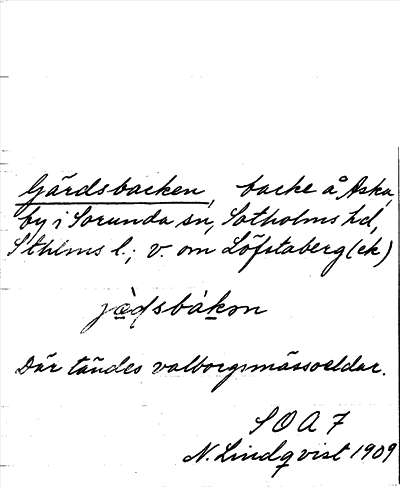 Gärdsbacken, backe å Aska
by i Sorunda sn, Sotholms hd,
Sthlms l.; v. om Löfstaberg (ek)
jæ̀ɖsbàkən
Där tändes valborgsmässoeldar.
S O A 7
N. Lindqvist 1909